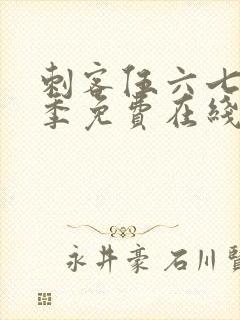 刺客伍六七
季免費在綫
永井豪 石川賢